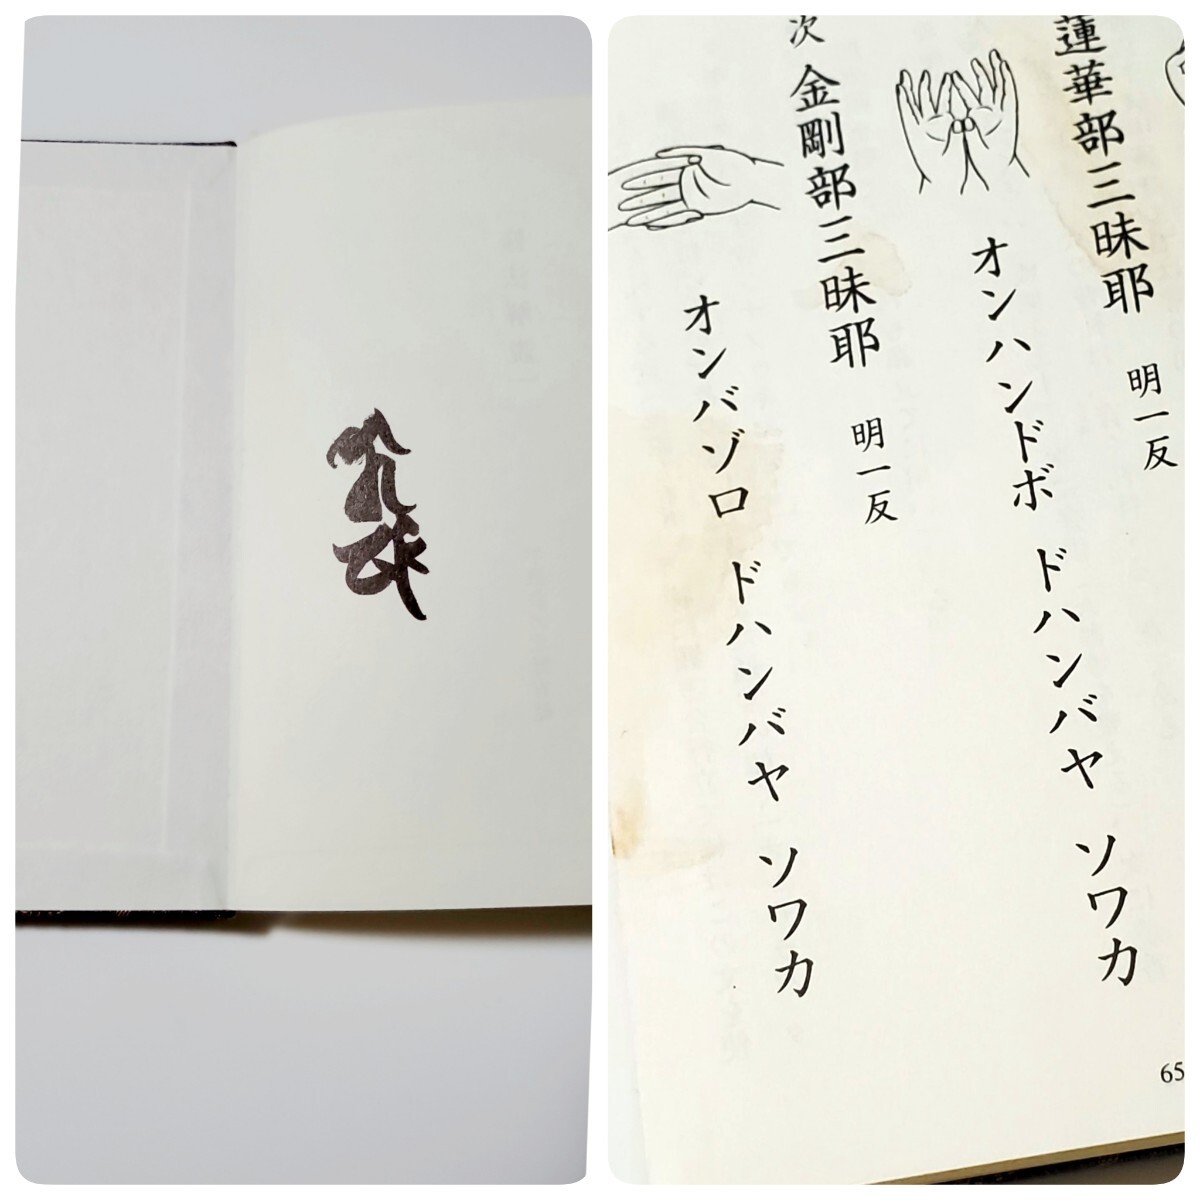 蓮華部三昧耶 明一反
オンハンドボ ドハンバヤ ソワカ
次 金剛部三昧耶 明一反
オンバゾロ ドハンバヤ ソワカ
65